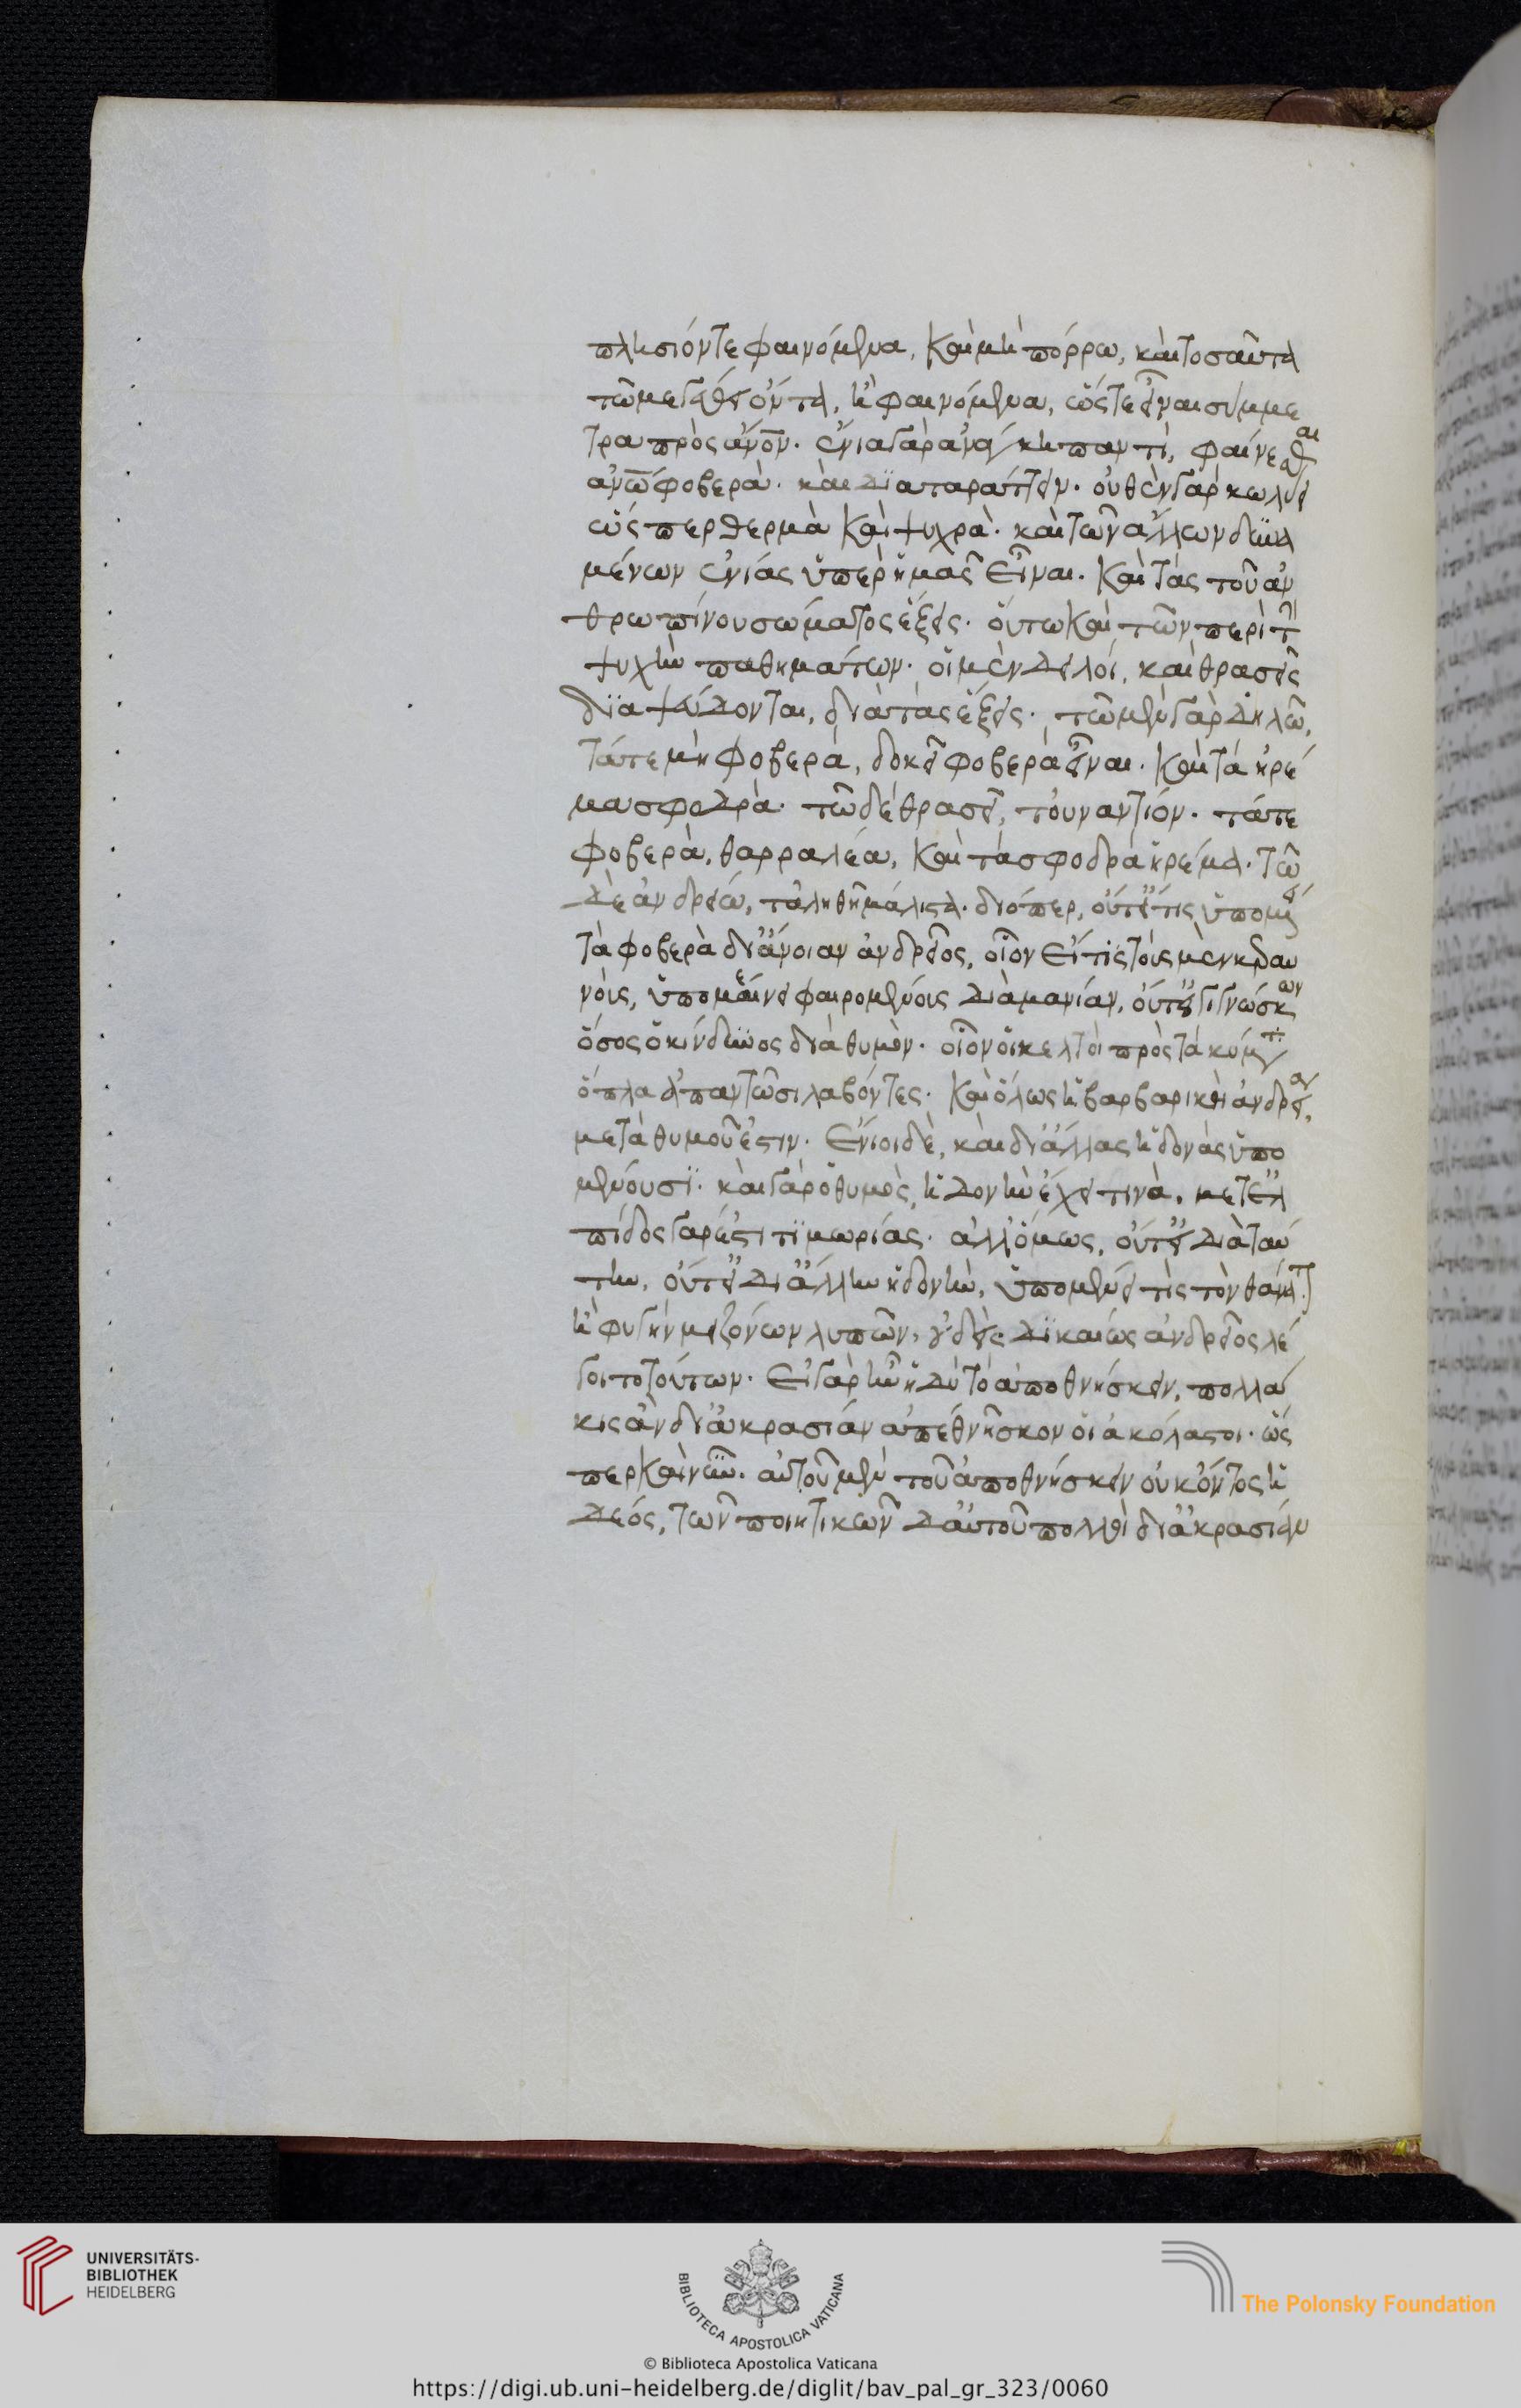 πλησιόντε φαινόμενα, καὶ μὴ πόρρω, καὶ τοσαῦτα
τῶ μεγέθει ὄντα, ἢ φαινόμενα, ὥστε εἶναι σύμμε
τρα πρὸς ἄνον. ἔνια γὰρ ἀνάγκη παντὶ, φαίνεσθαι
ἀνω φοβερὰ. καὶ διαταράττειν. οὐθὲν γὰρ κωλύει
ὥσπερ θερμὰ καὶ ψυχρὰ. καὶ τῶν ἄλλων δυνα
μέων ἐνίας ὑπὲρ ἡμᾶς εἶναι. καὶ τὰς τοῦ ἀν
θρωπίνου σώματος ἕξεις. οὕτω καὶ τῶν περὶ τὴν
ψυχὴν παθημάτων. οἱ μὲν δειλοί, καὶ θρασεῖς
διαψεύδονται, διὰ τὰς ἕξεις. τῶ μὲν γὰρ δειλῶ,
τά τε μὴ φοβερὰ, δοκεῖ φοβερὰ εἶναι. καὶ τὰ ἠρέ
μα σφοδρὰ. τῶ δὲ θρασεῖ, τοὐναντίον. τά τε
φοβερὰ, θαρραλέα, καὶ τὰ σφοδρὰ ἠρέμα. τῶ
δὲ ἀνδρείω, τἀληθῆ μάλιστα. διόπερ, οὔτ' εἴ τις ὑπομένει
τὰ φοβερὰ δι' ἄνοιαν ἀνδρεῖος, οἷον εἴ τις τοὺς μὲν κεραυ
νοὺς, ὑπομένει φερομένους διὰ μανίαν, οὔτ' εἰ γιγνώσκων
ὅσος ὁ κίνδυνος διὰ θυμόν. οἷον οἱ κελτοὶ πρὸς τὰ κύματα
ὅπλα ἀπαντῶσι λαβόντες. καὶ ὅλως ἡ βαρβαρικὴ ἀνδρεία,
μετὰ θυμοῦ ἐστιν. Ἔνιοι δὲ, καὶ δι' ἄλλας ἡδονὰς ὑπο
μένουσι. καὶ γὰρ ὁ θυμὸς, ἡδονὴν ἔχει τινὰ, μετ' ἐλ
πίδος γάρ ἐστι τιμωρίας. ἀλλ' ὅμως, οὔτ' εἰ διὰ ταύ
την, οὔτ' εἰ δι' ἄλλην ἡδονὴν, ὑπομένει τις τὸν θάνατον
ἢ φυγὴν μειζόνων λυπῶν, οὐδεὶς δικαίως ἀνδρεῖος λέ
γοιτο τούτων. Εἰ γὰρ ἦν ἡδὺ τὸ ἀποθνήσκειν, πολλά
κις ἂν δι' ἀκρασίαν ἀπέθνησκον οἱ ἀκόλαστοι. ὥσ
περ καὶ νῦν. αὐτοῦ μὲν τοῦ ἀποθνήσκειν οὐκ ὄντος ἡ
δέος, τῶν ποιητικῶν δ' αὐτοῦ πολλοὶ δι' ἀκρασίαν
UNIVERSITÄTS-
BIBLIOTHEK
HEIDELBERG
BIBLIOTECA APOSTOLICA VATICANA
The Polonsky Foundation
© Biblioteca Apostolica Vaticana
https://digi.ub.uni-heidelberg.de/diglit/bav_pal_gr_323/0060